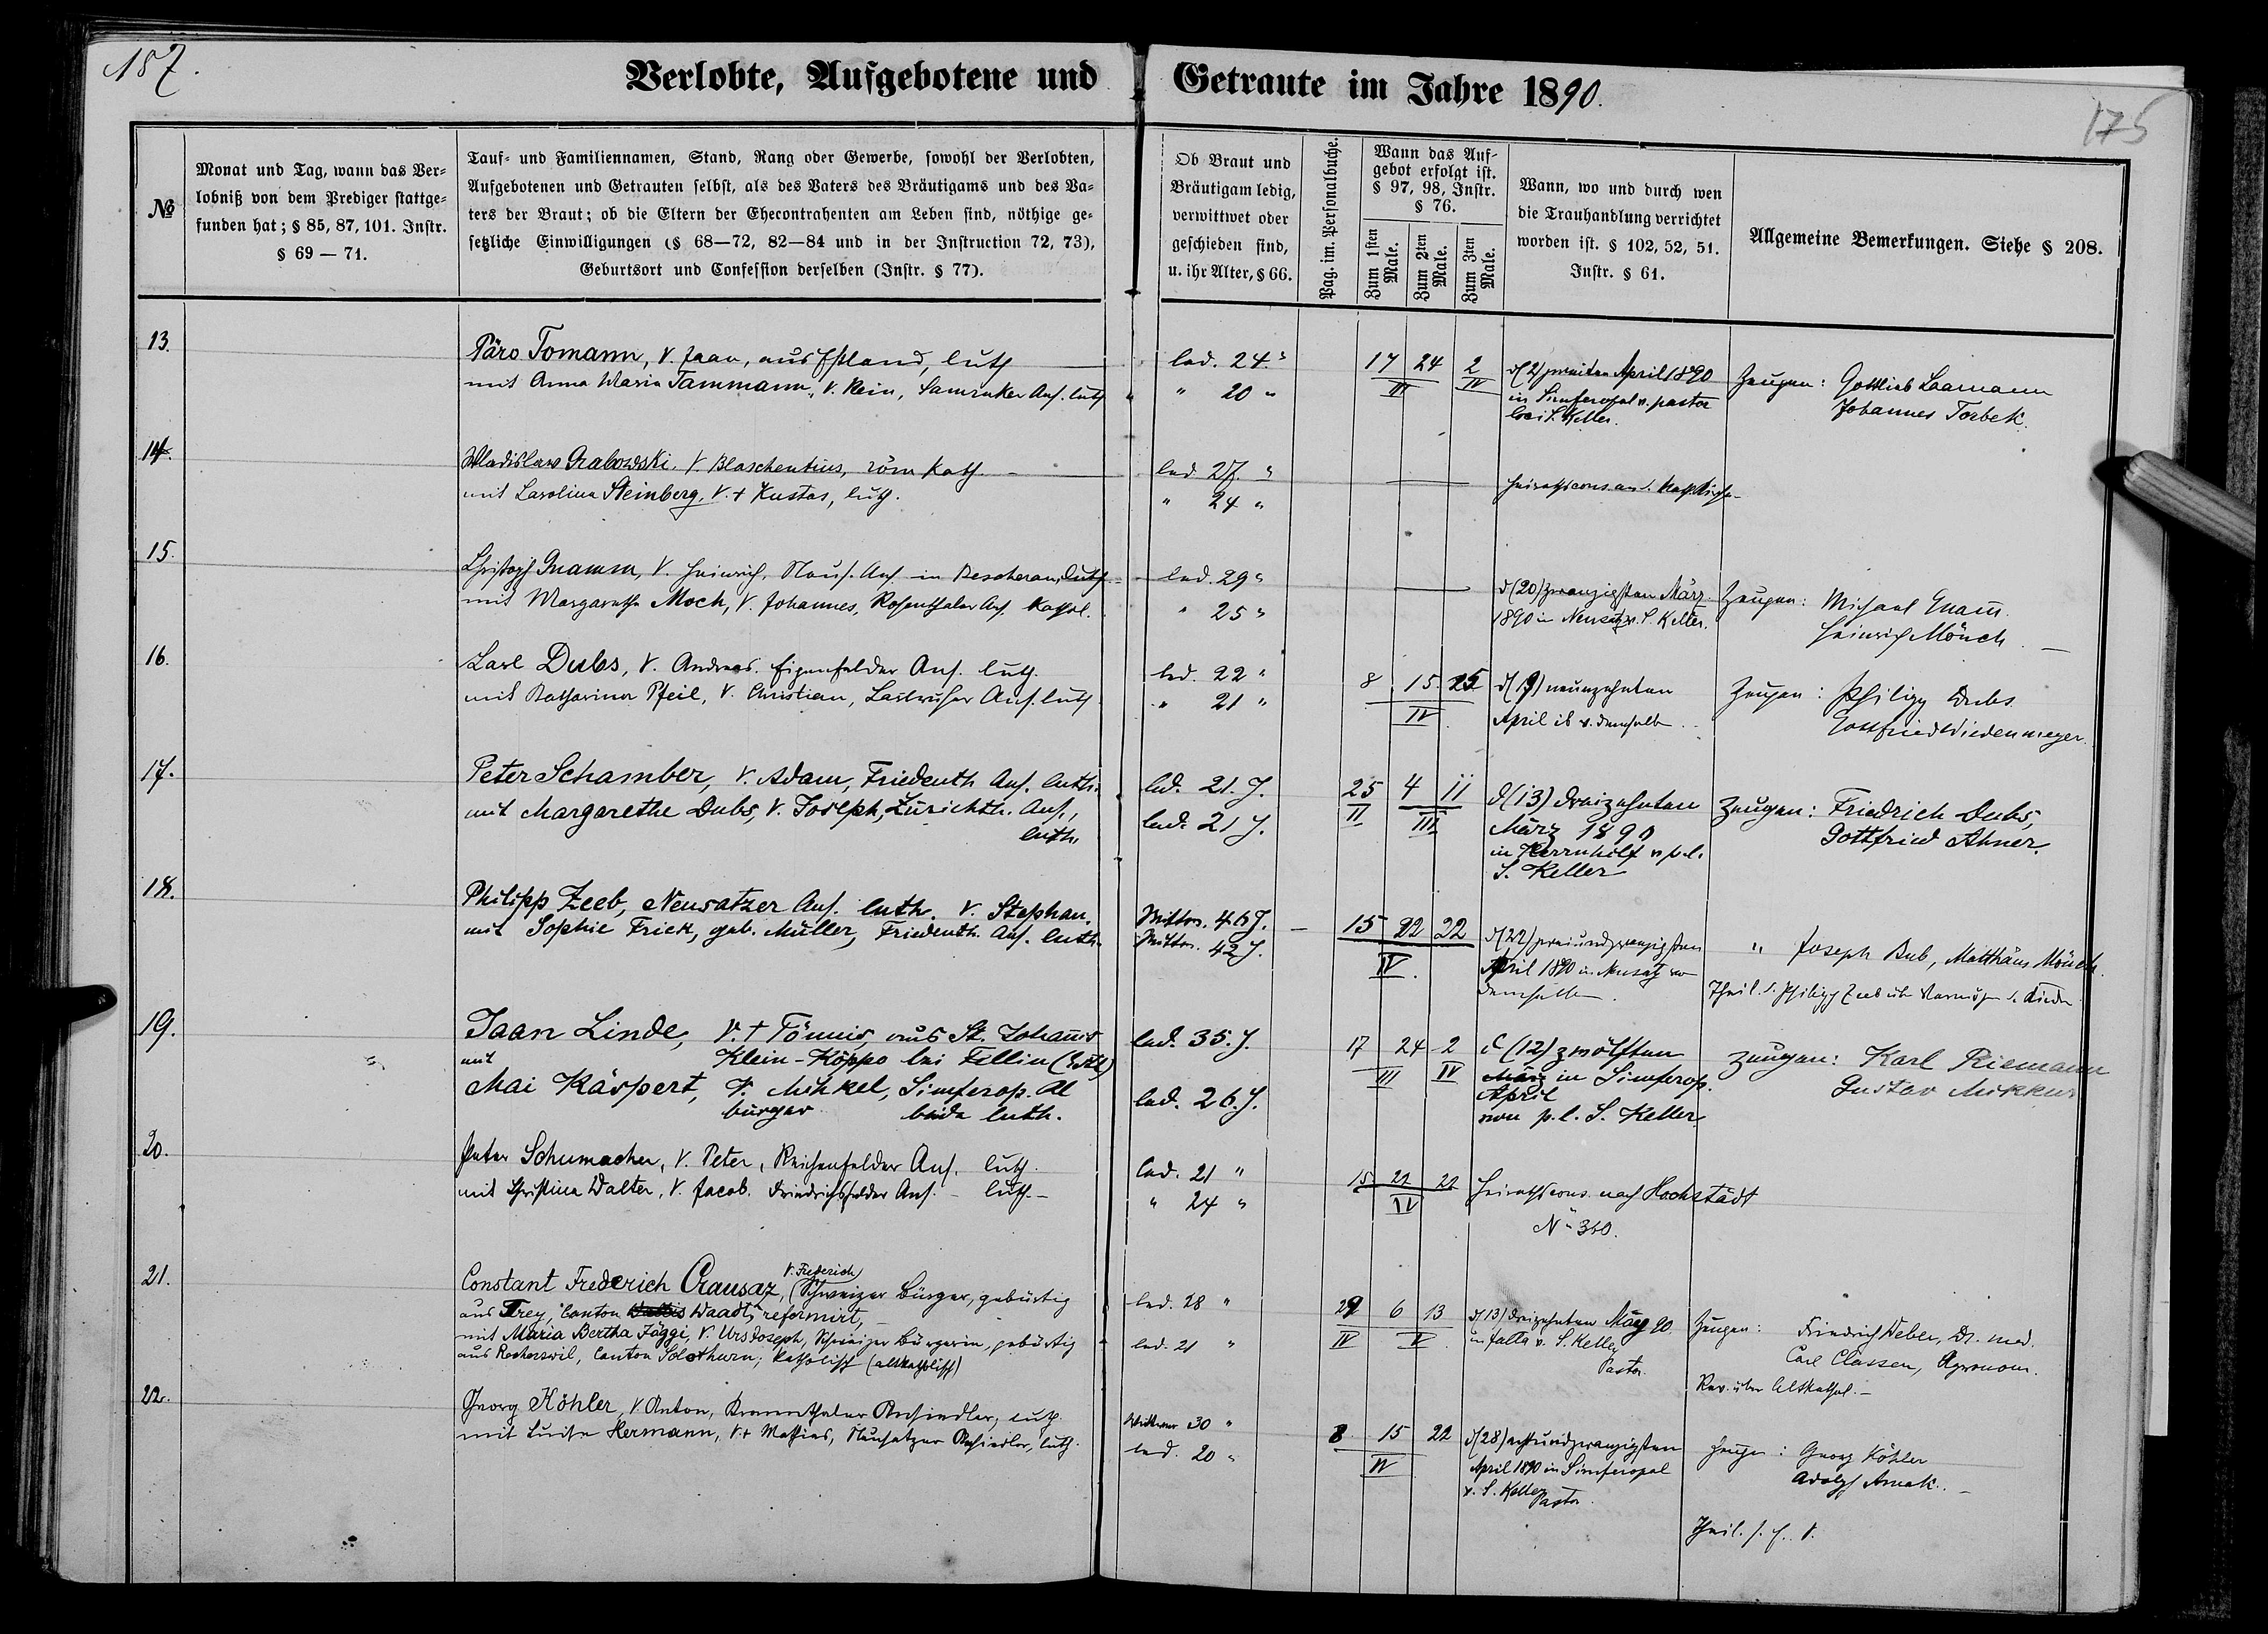 187.
175
Verlobte, Aufgebotene und Getraute im Jahre 1890.
№
Monat und Tag, wann das Ver-
lobniß von dem Prediger stattge-
funden hat; § 85, 87, 101. Instr.
§ 69 — 71.
Tauf- und Familiennamen, Stand, Rang oder Gewerbe, sowohl der Verlobten,
Aufgebotenen und Getrauten selbst, als des Vaters des Bräutigams und des Va-
ters der Braut; ob die Eltern der Ehecontrahenten am Leben sind, nöthige ge-
setzliche Einwilligungen (§ 68—72, 82—84 und in der Instruction 72, 73),
Geburtsort und Confession derselben (Instr. § 77).
Ob Braut und
Bräutigam ledig,
verwittwet oder
geschieden sind,
u. ihr Alter, § 66.
Pag. im. Personalbuche.
Wann das Auf-
gebot erfolgt ist.
§ 97, 98, Instr.
§ 76.
Zum 1sten
Male.
Zum 2ten
Male.
Zum 3ten
Male.
Wann, wo und durch wen
die Trauhandlung verrichtet
worden ist. § 102, 52, 51.
Instr. § 61.
Allgemeine Bemerkungen. Siehe § 208.
13.
Päro Tomann, V. Jaan, aus Estland, luth
mit Anna Maria Tammann, V. Rein, Samruker Ans. luth
led. 24 "
" 20 "
17 24 2
III IV
d (2) zweiten April 1890
in Simferopol v. pastor
loci S. Keller.
Zeugen: Gottlieb Laamann
Johannes Torbek.
14.
Wladislaw Grabowski, V. Blaschentius, röm Kath
mit Carolina Steinberg, V. + Kustas, luth.
led 27. "
" 24 "
15.
Christoph Gnamm, V. Heinrich, Neus. Ans. in Bescheran, luth
mit Margaretha Moch, V. Johannes, Rosenthaler Ans. Kathol.
led. 29 "
" 25 "
d (20) zwanzigsten März
1890 in Neusatz v. S. Keller.
Zeugen: Michael Gnam
Heinrich Mönch
16.
Karl Dubs, V. Andreas. Eigenfelder Ans. luth.
mit Katharina Pfeil, V. Christian, Carlruher Ans. luth
led. 22 "
" 21 "
8 15 25
IV
d (19) neunzehnten
April ib v. demselb
Zeugen: Philipp Dubs
Gottfried Wiedenmeyer.
17.
Peter Schamber, V. Adam, Friedenth Ans. luth.
mit Margarethe Dubs, V. Joseph, Zürichth. Ans.,
luth.
led. 21. J.
led. 21 J.
25 4 11
II III
d (13) dreizehnten
März 1890
in Herrnhilf v p. l.
S. Keller
Zeugen: Friedrich Dubs,
Gottfried Ahner.
18.
Philipp Zeeb, Neusatzer Ans. luth. V. Stephan.
mit Sophie Frick, geb. Müller, Friedenth. Ans. luth.
Wittwr. 46 J.
Wittw. 42 J.
15 22 22
IV.
d (22) zweiundzwanzigsten
April 1890 in Neusatz von
demselben.
" Joseph Bub, Matthäus Mönch.
19.
Jaan Linde, V. + Tönnis, aus St. Johanns
mit Klein-Köppo bei Fellin (Estl)
Mai Käspert, V. Mihkel, Simferop. Al
bürger beide luth.
led. 35. J.
led. 26. J.
17 24 2
III IV
d (12) zwölften
März in Simferop.
April
von p. l. S. Keller
Zeugen: Karl Riemann
Gustav Mikkus
20.
Peter Schumacher, V. Peter, Reichenfelder Ans. luth.
mit Christina Walter, V. Jacob. Friedrichsfelder Ans. - luth. -
led. 21 "
" 24 "
15 22 22
IV
Heirathscons. nach Hochstädt
№ 350.
21.
V. Frederich
Constant Frederich Crausaz, Schweizer Bürger, gebürtig
aus Trey, Canton Wallis Waadt, reformirt,
mit Maria Bertha Jäggi, V. Urs Joseph, Schweizer Bürgerin, gebürtig
aus Recherswil, Canton Solothurn, katholisch (altkatholisch)
led. 28 "
led. 21 "
29 6 13
IV V
d (13) dreizehnten May 90.
in Jalta v. S. Keller
Pastor.
Zeugen: Friedrich Weber, Dr. med.
Carl Classen, Agronom.
Rev. über Altkathol. -
22.
Georg Köhler, V. Anton, Kronenthaler Ansiedler, luth.
mit Luise Hermann, V + Mathias, Neusatzer Ansiedler, luth.
Wittwer 30 "
led. 20 "
8 15 22
IV
d (28) achtundzwanzigsten
April 1890 in Simferopol
v. S. Keller
Pastor.
Zeugen: Georg Köhler
Adolph Amak. -